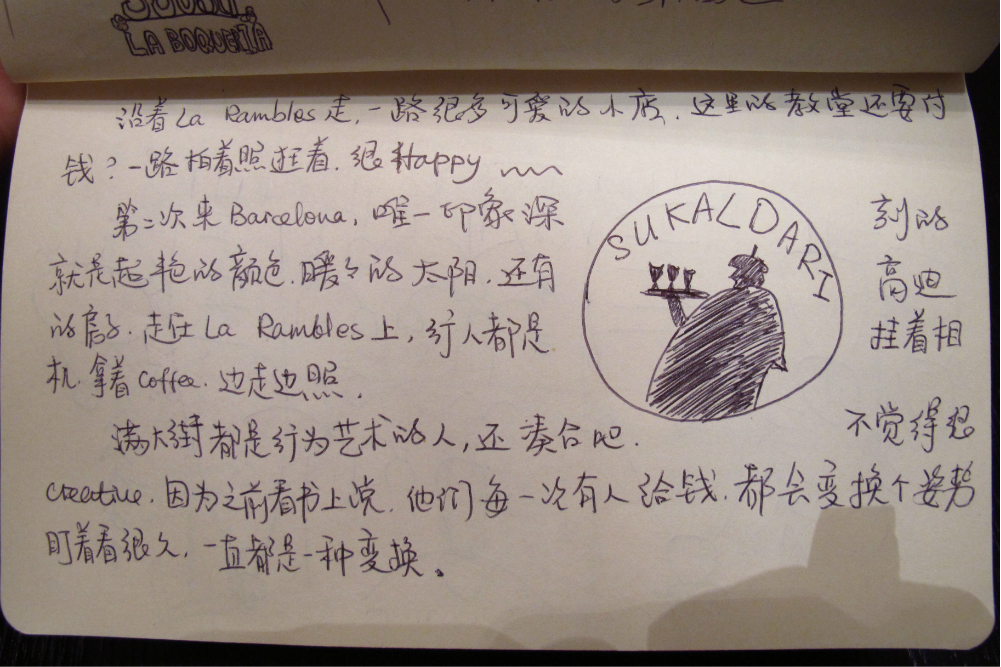 LA BOQUERIA
沿着La Rambles走,一路很多可爱的小店.这里的教堂还要付
钱?一路拍着照逛着.很Happy
第二次来Barcelona,唯一印象深 刻的
就是超艳的颜色.暖々的太阳.还有 高迪
的房子.走在La Rambles上,行人都是 挂着相
机.拿着coffee.边走边照.
SUKALDARI
满大街都是行为艺术的人,还凑合吧. 不觉得很
creative.因为之前看书上说.他们每一次有人给钱.都会变换个姿势
盯着看很久,一直都是一种变换。